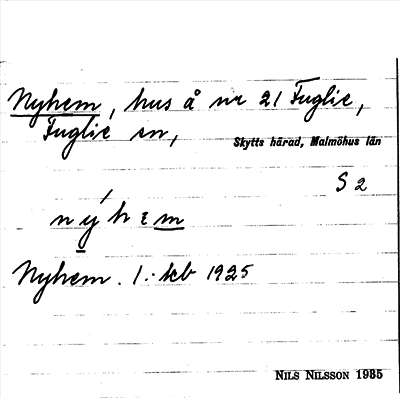 Nyhem, hus å nr 21 Fuglie,
Fuglie sn,
Skytts härad, Malmöhus län
S 2
nýhɛm
Nyhem. 1.: kb 1925
NILS NILSSON 1935